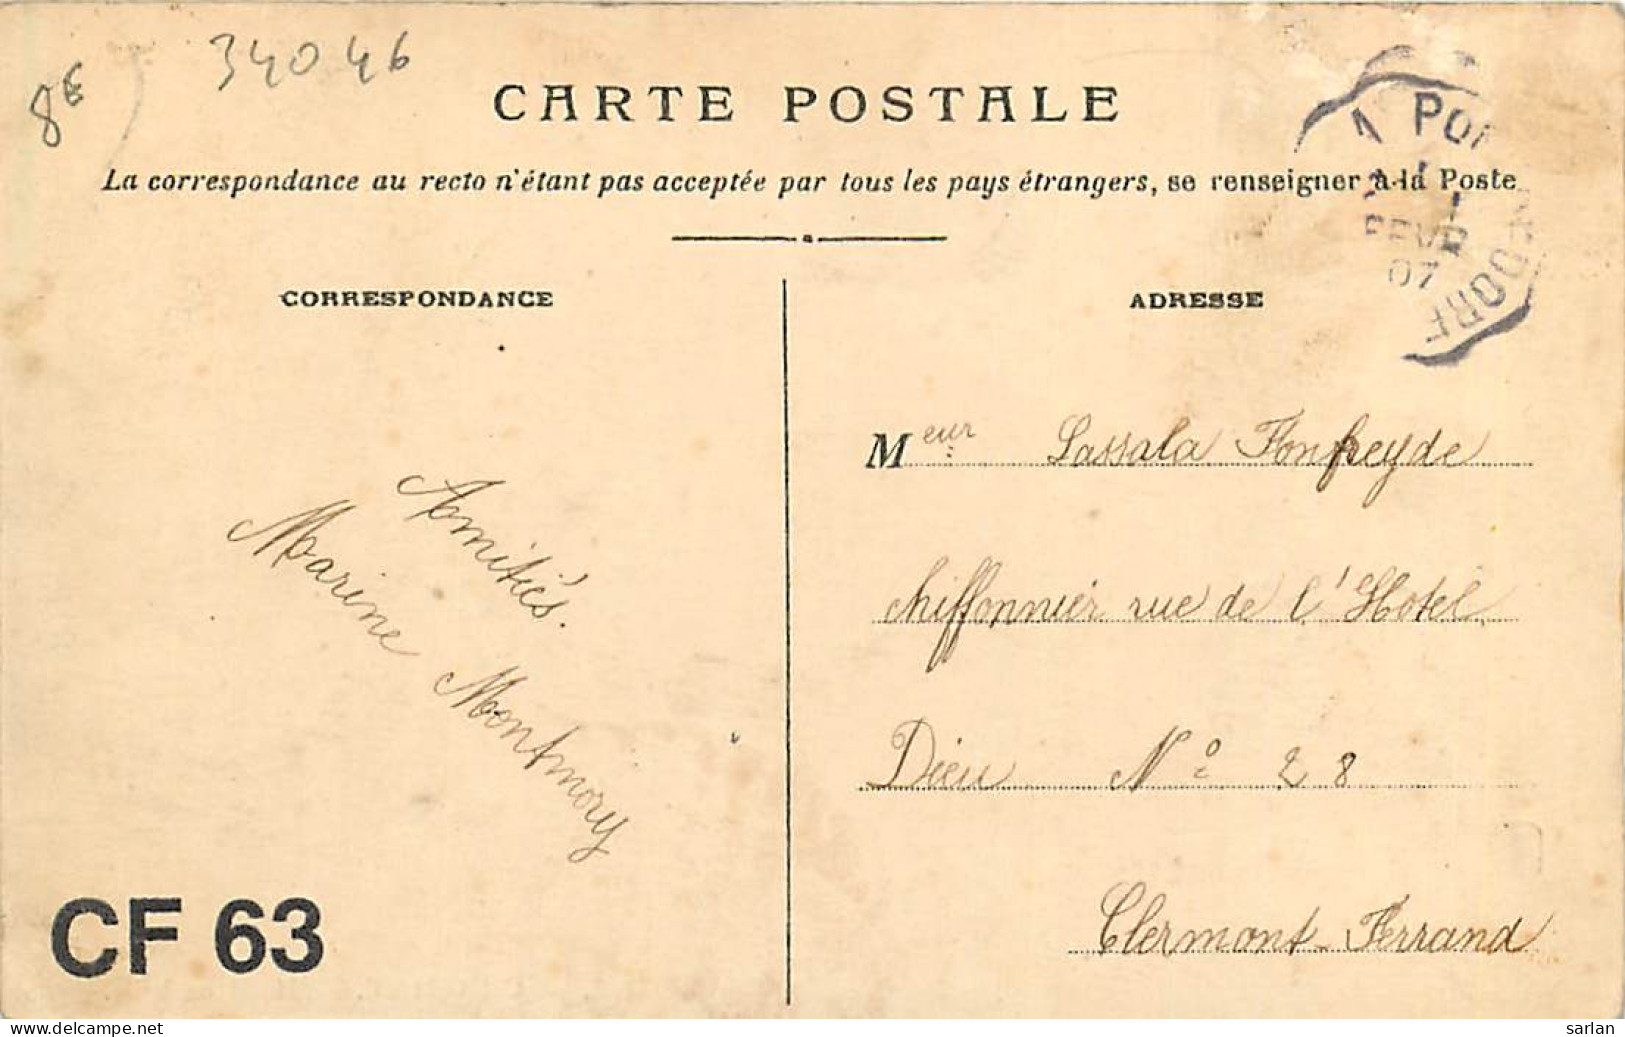 8€
34046
CARTE POSTALE
La correspondance au recto n'étant pas acceptée par tous les pays étrangers, se renseigner à la Poste
A PON
1
FEVR
07
CORRESPONDANCE
ADRESSE
Amitiés.
Marine Montmory
Meur Lassala Fonfreyde
chiffonnier rue de l'Hotel
Dieu Nº 28
Clermont-Ferrand
CF 63
www.delcampe.net
sarlan